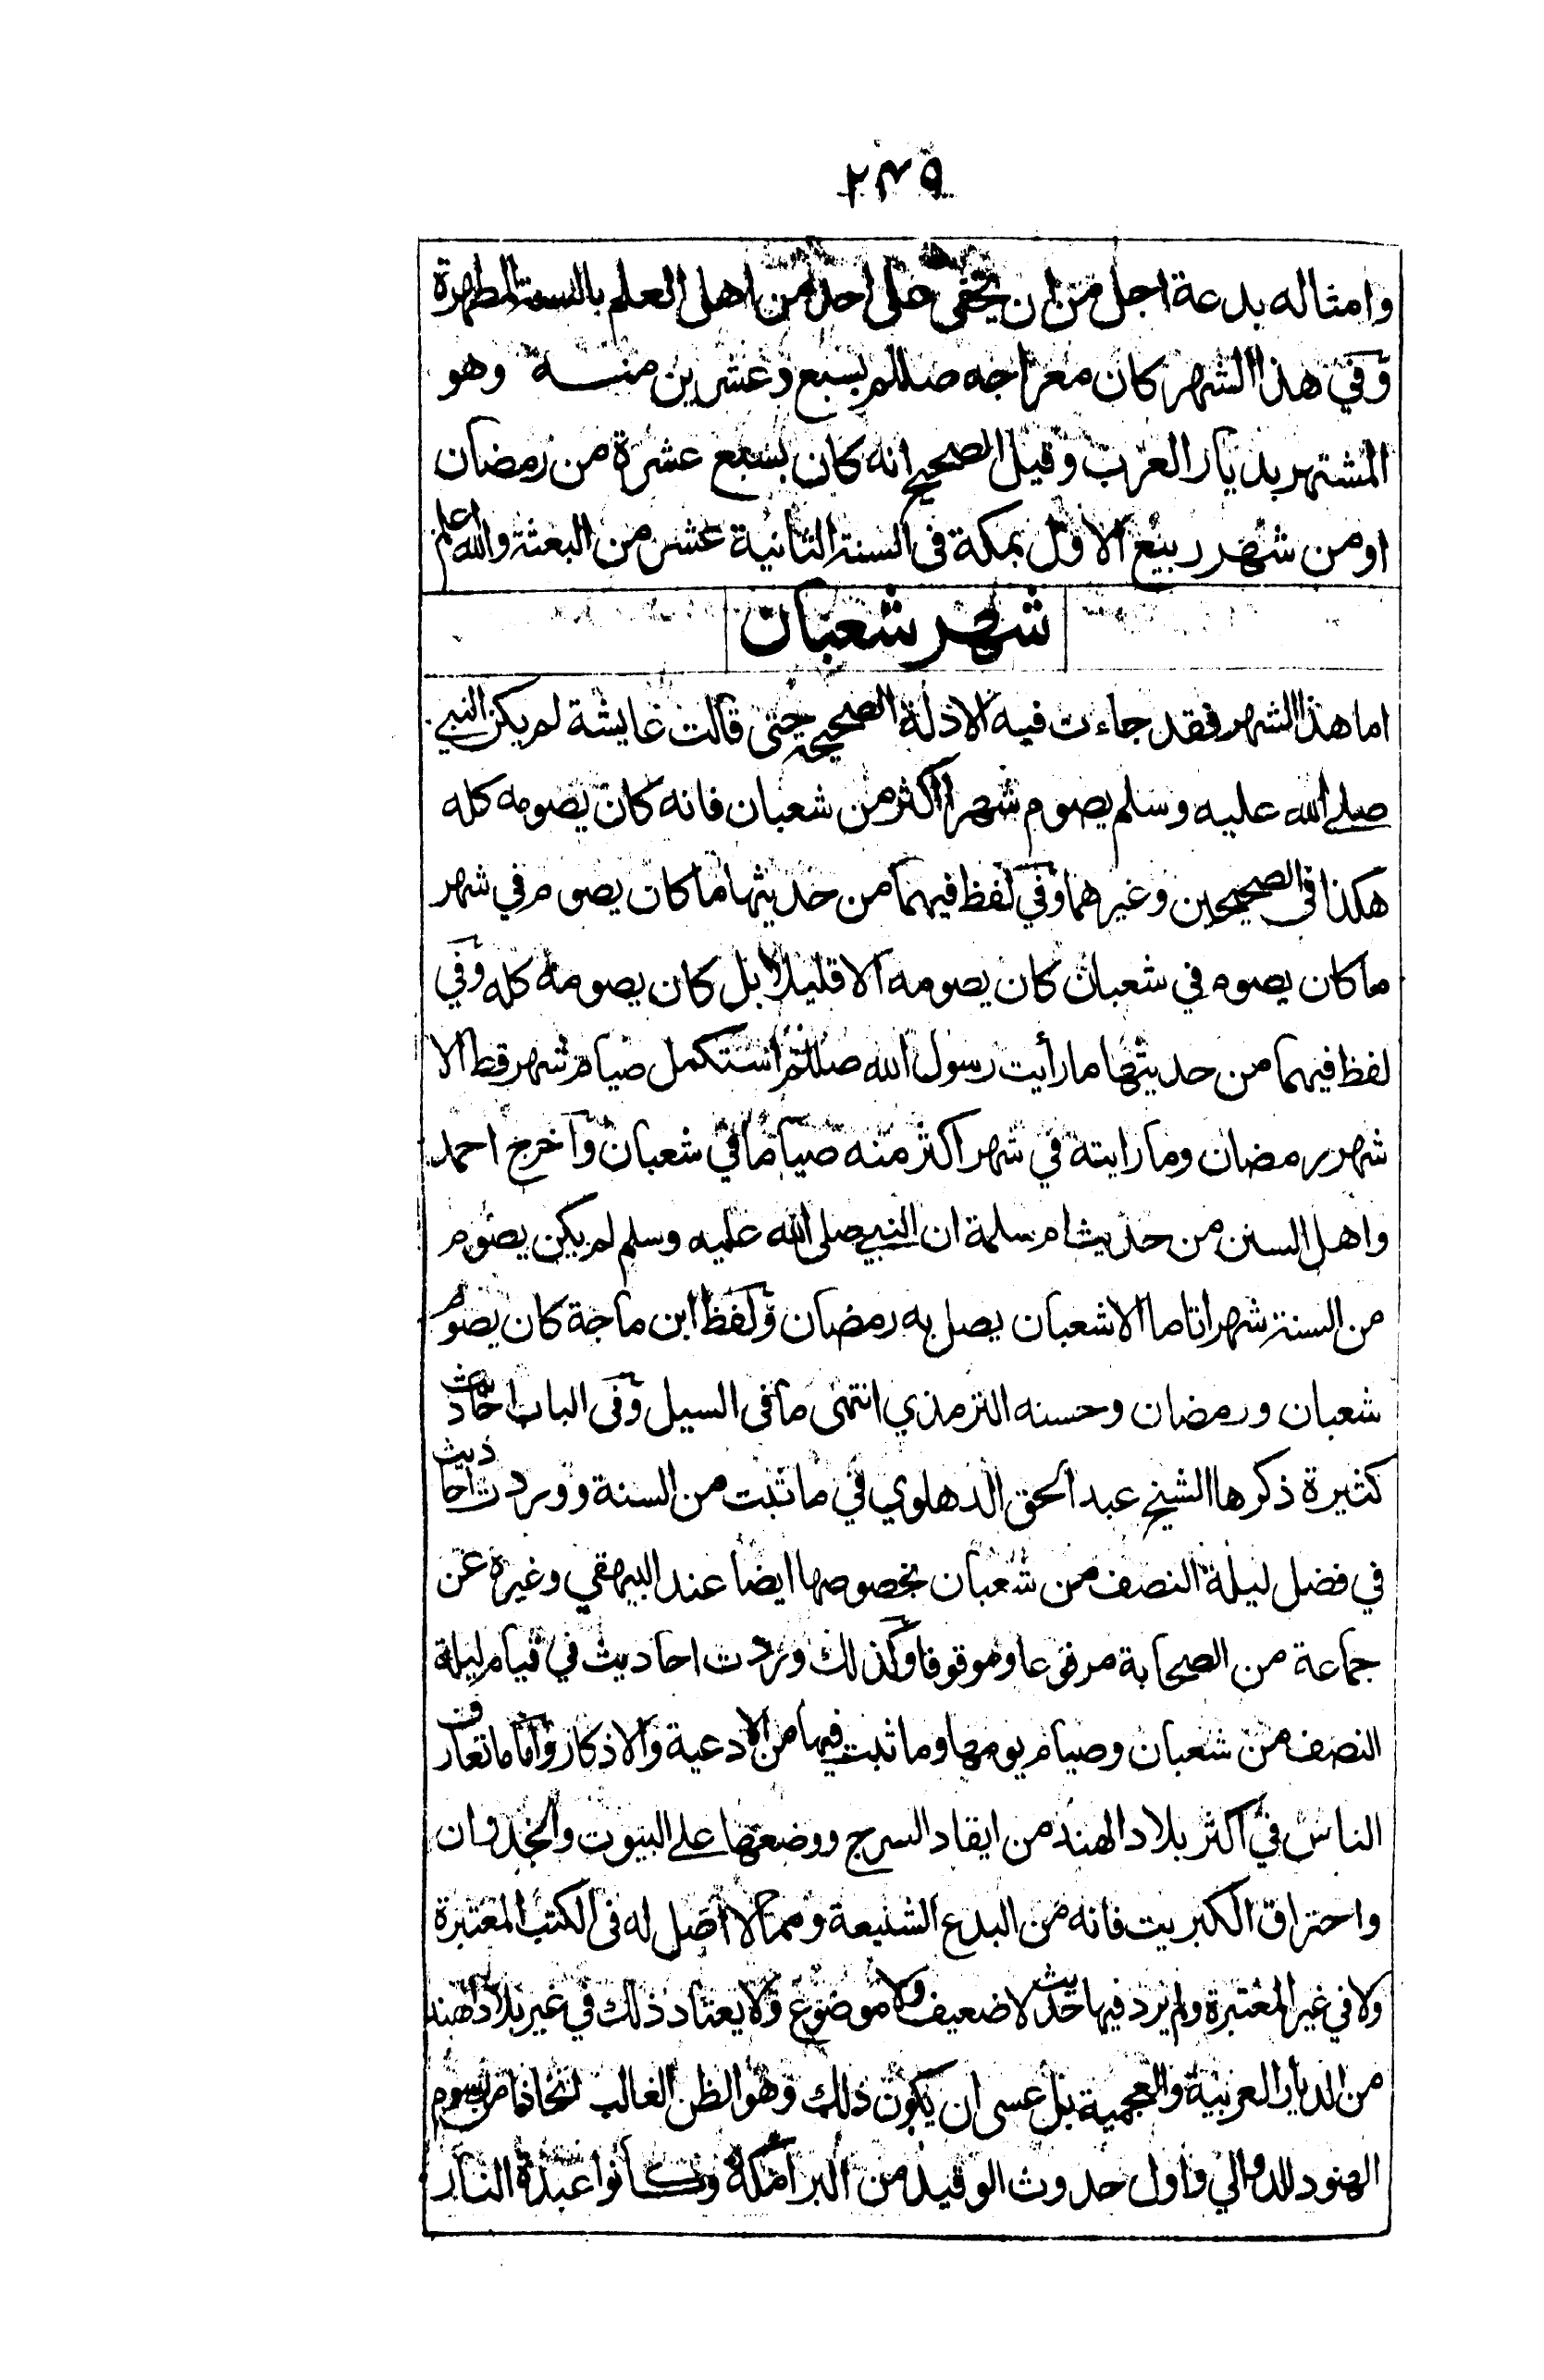 ٢٤٩
وامثاله بدعة اجل من ان يخفى على احد من اهل العلم بالسنة المطهرة
وفي هذا الشهر كان معراجه صللم بسبع وعشرين منه وهو
المشتهر بديار العرب وقيل الصحيح انه كان بسبع عشرة من رمضان
او من شهر ربيع الاول بمكة فى السنة الثانية عشر من البعثة والله اعلم
شهر شعبان
اما هذا الشهر فقد جاءت فيه الادلة الصحيحة حتى قالت عايشة لم يكن النبي
صلى الله عليه وسلم يصوم شهرا اكثر من شعبان فانه كان يصومه كله
هكذا فى الصحيحين وغيرهما وفي لفظ فيهما من حديثها ما كان يصوم في شهر
ما كان يصوم في شعبان كان يصومه الا قليلا بل كان يصومه كله وفي
لفظ فيهما من حديثها ما رأيت رسول الله صللم استكمل صيام شهر قط الا
شهر رمضان وما رايته في شهر اكثر منه صياما في شعبان واخرج احمد
واهل السنن من حديث ام سلمة ان النبي صلى الله عليه وسلم لم يكن يصوم
من السنة شهرا تاما الا شعبان يصل به رمضان ولفظ ابن ماجة كان يصوم
شعبان ورمضان وحسنه الترمذي انتهى ما فى السيل وفى الباب احاديث
كثيرة ذكرها الشيخ عبد الحق الدهلوي في ما ثبت من السنة ووردت احاديث
في فضل ليلة النصف من شعبان بخصوصها ايضا عند البيهقي وغيره عن
جماعة من الصحابة مرفوعا وموقوفا وكذلك وردت احاديث في قيام ليلة
النصف من شعبان وصيام يومها وما ثبت فيها من الادعية والاذكار واما ما تعارف
الناس في اكثر بلاد الهند من ايقاد السرج ووضعها على البيوت والجدران
واحتراق الكبريت فانه من البدع الشنيعة ومما لا اصل له فى الكتب المعتبرة
ولا في غير المعتبرة ولم يرد فيها حديث لا ضعيف ولا موضوع ولا يعتاد ذلك في غير بلاد الهند
من الديار العربية والعجمية بل عسى ان يكون ذلك وهو الظن الغالب اتخاذا من رسوم
الهنود للدوالي واول حدوث الوقيد من البرامكة وكانوا عبدة النار